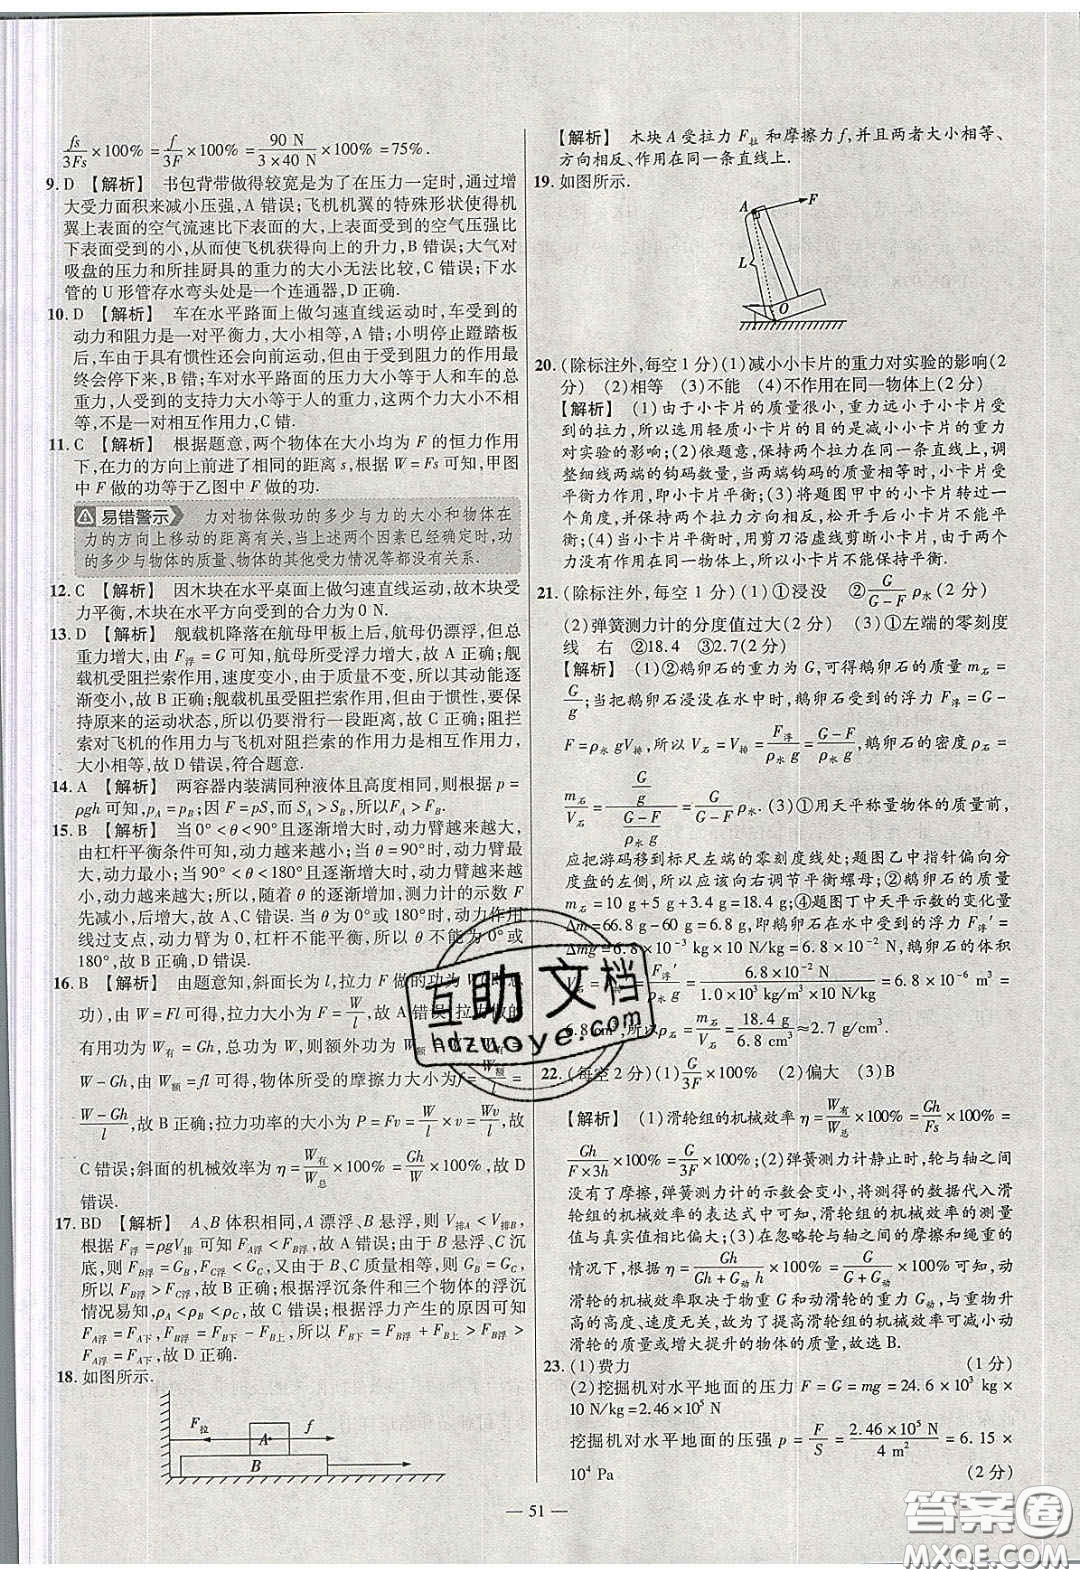 fs/3Fs×100%=f/3F×100%=90 N/(3×40 N)×100%=75%.
9. D 【解析】 书包背带做得较宽是为了在压力一定时,通过增
大受力面积来减小压强,A 错误;飞机机翼的特殊形状使得机
翼上表面的空气流速比下表面的大,上表面受到的空气压强
比下表面受到的小,从而使飞机获得向上的升力,B 错误;大气对
吸盘的压力和所挂厨具的重力的大小无法比较,C 错误;下水
管的 U 形管存水弯头处是一个连通器,D 正确.
10. D 【解析】 车在水平路面上做匀速直线运动时,车受到的
动力和阻力是一对平衡力,大小相等,A 错;小明停止蹬踏板
后,由于具有惯性还会向前运动,但因受到阻力的作用最
终会停下,B 错;车对水平路面的压力大小等于人和车的总
重,人受到的支持力大小等于人的重力,这两个力大小不相
等,不是一对相互作用力,C 错.
11. C 【解析】 根据题意,两个物体在大小均为 F 的恒力作用
下,在力的方向上前进了相同的距离 s,根据 W=Fs 可知,甲图
中 F 做的功等于乙图中 F 做的功.
易错警示 力对物体做功的多少与力的大小和物体在
力的方向上移动的距离有关,当上述两个因素已经确定时,功
的多少与物体的质量、物体的其他受力情况等都没有关系.
12. C 【解析】 因木块在水平桌面上做匀速直线运动,故木块受
力平衡,木块在水平方向受到的合力为 0 N.
13. D 【解析】 舰载机降落在航母甲板上后,航母仍漂浮,但总
重力增大,由 F浮=G 可知,航母所受浮力增大,故 A 正确;舰
载机受阻拦索作用,速度变小,由于质量不变,所以其动能逐
渐变小,故 B 正确;舰载机虽受阻拦索作用,但由于惯性,要
保持原来的运动状态,所以仍要滑行一段距离,故 C 正确;阻拦
索对飞机的作用力与飞机对阻拦索的作用力是相互作用力,
大小相等,故 D 错误,符合题意.
14. A 【解析】 两容器内装满同种液体且高度相同,则根据 p=
ρgh 可知,pA=pB;因 F=pS,而 SA>SB,所以FA>FB.
15. B 【解析】 当 0°<θ<90°且逐渐增大时,动力臂越来越大,
由杠杆平衡条件可知,动力越来越小;当 θ=90°时,动力臂最
大,动力最小;当 90°<θ<180°且逐渐增大时,动力臂越来越
小,动力越来越大;所以,随着 θ 的逐渐增加,测力计的示数 F
先减小,后增大,故 B 正确,A、C 错误;当 θ=0°或 180°时,动力作用
线过支点,动力臂为 0,杠杆不能平衡,故 θ 不能为 0°或
180°,故 D 错误.
16. B 【解析】 由题意知,斜面长为 l,拉力 F 做的功为 W(即总
功),由 W=Fl 可得,拉力大小为 F=W/l,故 A 错误;拉力做的
有用功为 W有=Gh,总功为 W,则额外功为 W额=W-W有=
W-Gh,由 W额=fl 可得,物体所受的摩擦力大小为f=W额/l=
(W-Gh)/l,故B 正确;拉力功率的大小为 P=Fv=W/l×v=Wv/l,故
C 错误;斜面的机械效率为 η=W有/W总×100%=Gh/W×100%,故 D
错误.
17. BD 【解析】 A、B 体积相同,A 漂浮、B 悬浮,则 V排A<V排B,
根据 F浮=ρgV排 可知 FA浮<FB浮,故 A 错误;由于 B 悬浮、C 沉
底,则 FB浮=GB,FC浮<GC,又由于 B、C 质量相等,则 GB=GC,
所以 FB浮>FC浮,故 B 正确;根据浮沉条件和三个物体的浮沉
情况易知,ρA<ρB<ρC,故 C 错误;根据浮力产生的原因可知
FA浮=FA下,FB浮=FB下-FB上,所以 FB浮+FB上>FB浮>
FA浮=FA下,故 D 正确.
18. 如图所示.
F拉 f
A
B
【解析】 木块 A 受拉力 F拉 和摩擦力 f,并且两者大小相等、
方向相反、作用在同一条直线上.
19. 如图所示.
A F
L
O
20. (除标注外,每空 1 分)(1)减小小卡片的重力对实验的影响(2
分) (2)相等 (3)不能 (4)不作用在同一物体上(2 分)
【解析】 (1)由于小卡片的质量很小,重力远小于小卡片受
到的拉力,所以选用轻质小卡片的目的是减小小卡片的重力
对实验的影响;(2)依题意,保持两个拉力在同一条直线上,调
整细线两端的钩码数量,当两端钩码的质量相等时,小卡片平
衡受力作用,即小卡片平衡;(3)将题图甲中的小卡片扭转一个
角度,并保持两个拉力方向相反,松手后小卡片不能平衡;
(4)当小卡片平衡时,用剪刀沿虚线剪断小卡片,此时,两个力
不作用在同一物体上,所以小卡片不能保持平衡.
21. (除标注外,每空 1 分)(1)①浸没 ②G/(G-F)ρ水(2 分)
(2)弹簧测力计的分度值过大 (3)①左端的零刻度
线 右 ②18.4 ③2.7(2 分)
【解析】 (1)②鹅卵石的重力为 G,可得鹅卵石的质量 m石=
G/g;当把鹅卵石浸没在水中时,鹅卵石受到的浮力 F浮=G-
F=ρ水gV排,所以 V石=V排=F浮/ρ水g=(G-F)/ρ水g,鹅卵石的密度 ρ石=
m石/V石=(G/g)/((G-F)/ρ水g)=G/(G-F)ρ水. (3)①用天平称量物体的质量前,
应把游码移到标尺左端的零刻度线处;题图乙中指针偏向分
度盘的左侧,所以应该向右调节平衡螺母;②鹅卵石的质量
m石=10 g+5 g+3.4 g=18.4 g;④题图丁中天平示数的变化量
Δm=66.8 g-60 g=6.8 g,即鹅卵石在水中受到的浮力 F浮′=
Δmg=6.8×10⁻³ kg×10 N/kg=6.8×10⁻² N,鹅卵石的体积
F浮′ 6.8×10⁻² N/(1.0×10³ kg/m³×10 N/kg)=6.8×10⁻⁶ m³=
6.8 cm³,所以 ρ石=m石/V石=18.4 g/6.8 cm³≈2.7 g/cm³.
22. (每空 2 分)(1)G/3F×100% (2)偏大 (3)B
【解析】 (1)滑轮组的机械效率 η=W有/W总×100%=Gh/Fs×100%=
Gh/(F×3h)×100%=G/3F×100%;(2)弹簧测力计静止时,轮与轴之间
没有了摩擦,弹簧测力计的示数会变小,将测得的数据代入滑
轮组的机械效率的表达式中可知,滑轮组的机械效率的测量
值与真实值相比偏大;(3)在忽略轮与轴之间的摩擦和绳重的
情况下,根据 η=Gh/(Gh+G动h)×100%=G/(G+G动)×100%可知,动
滑轮的机械效率取决于物重 G和动滑轮的重力 G动,与重物提
升的高度、速度无关,故为了提高滑轮组的机械效率可减小动
滑轮的质量或增大提升的物体的质量,故选 B.
23. (1)费力 (1 分)
(2)挖掘机对水平地面的压力 F=G=mg=24.6×10³ kg×
10 N/kg=2.46×10⁵ N
挖掘机对水平地面的压强 p=F/S=2.46×10⁵ N/4 m²=6.15×
10⁴ Pa (2 分)
— 51 —
互助文档
hdzuoye.com
答案圈
MXQE.COM